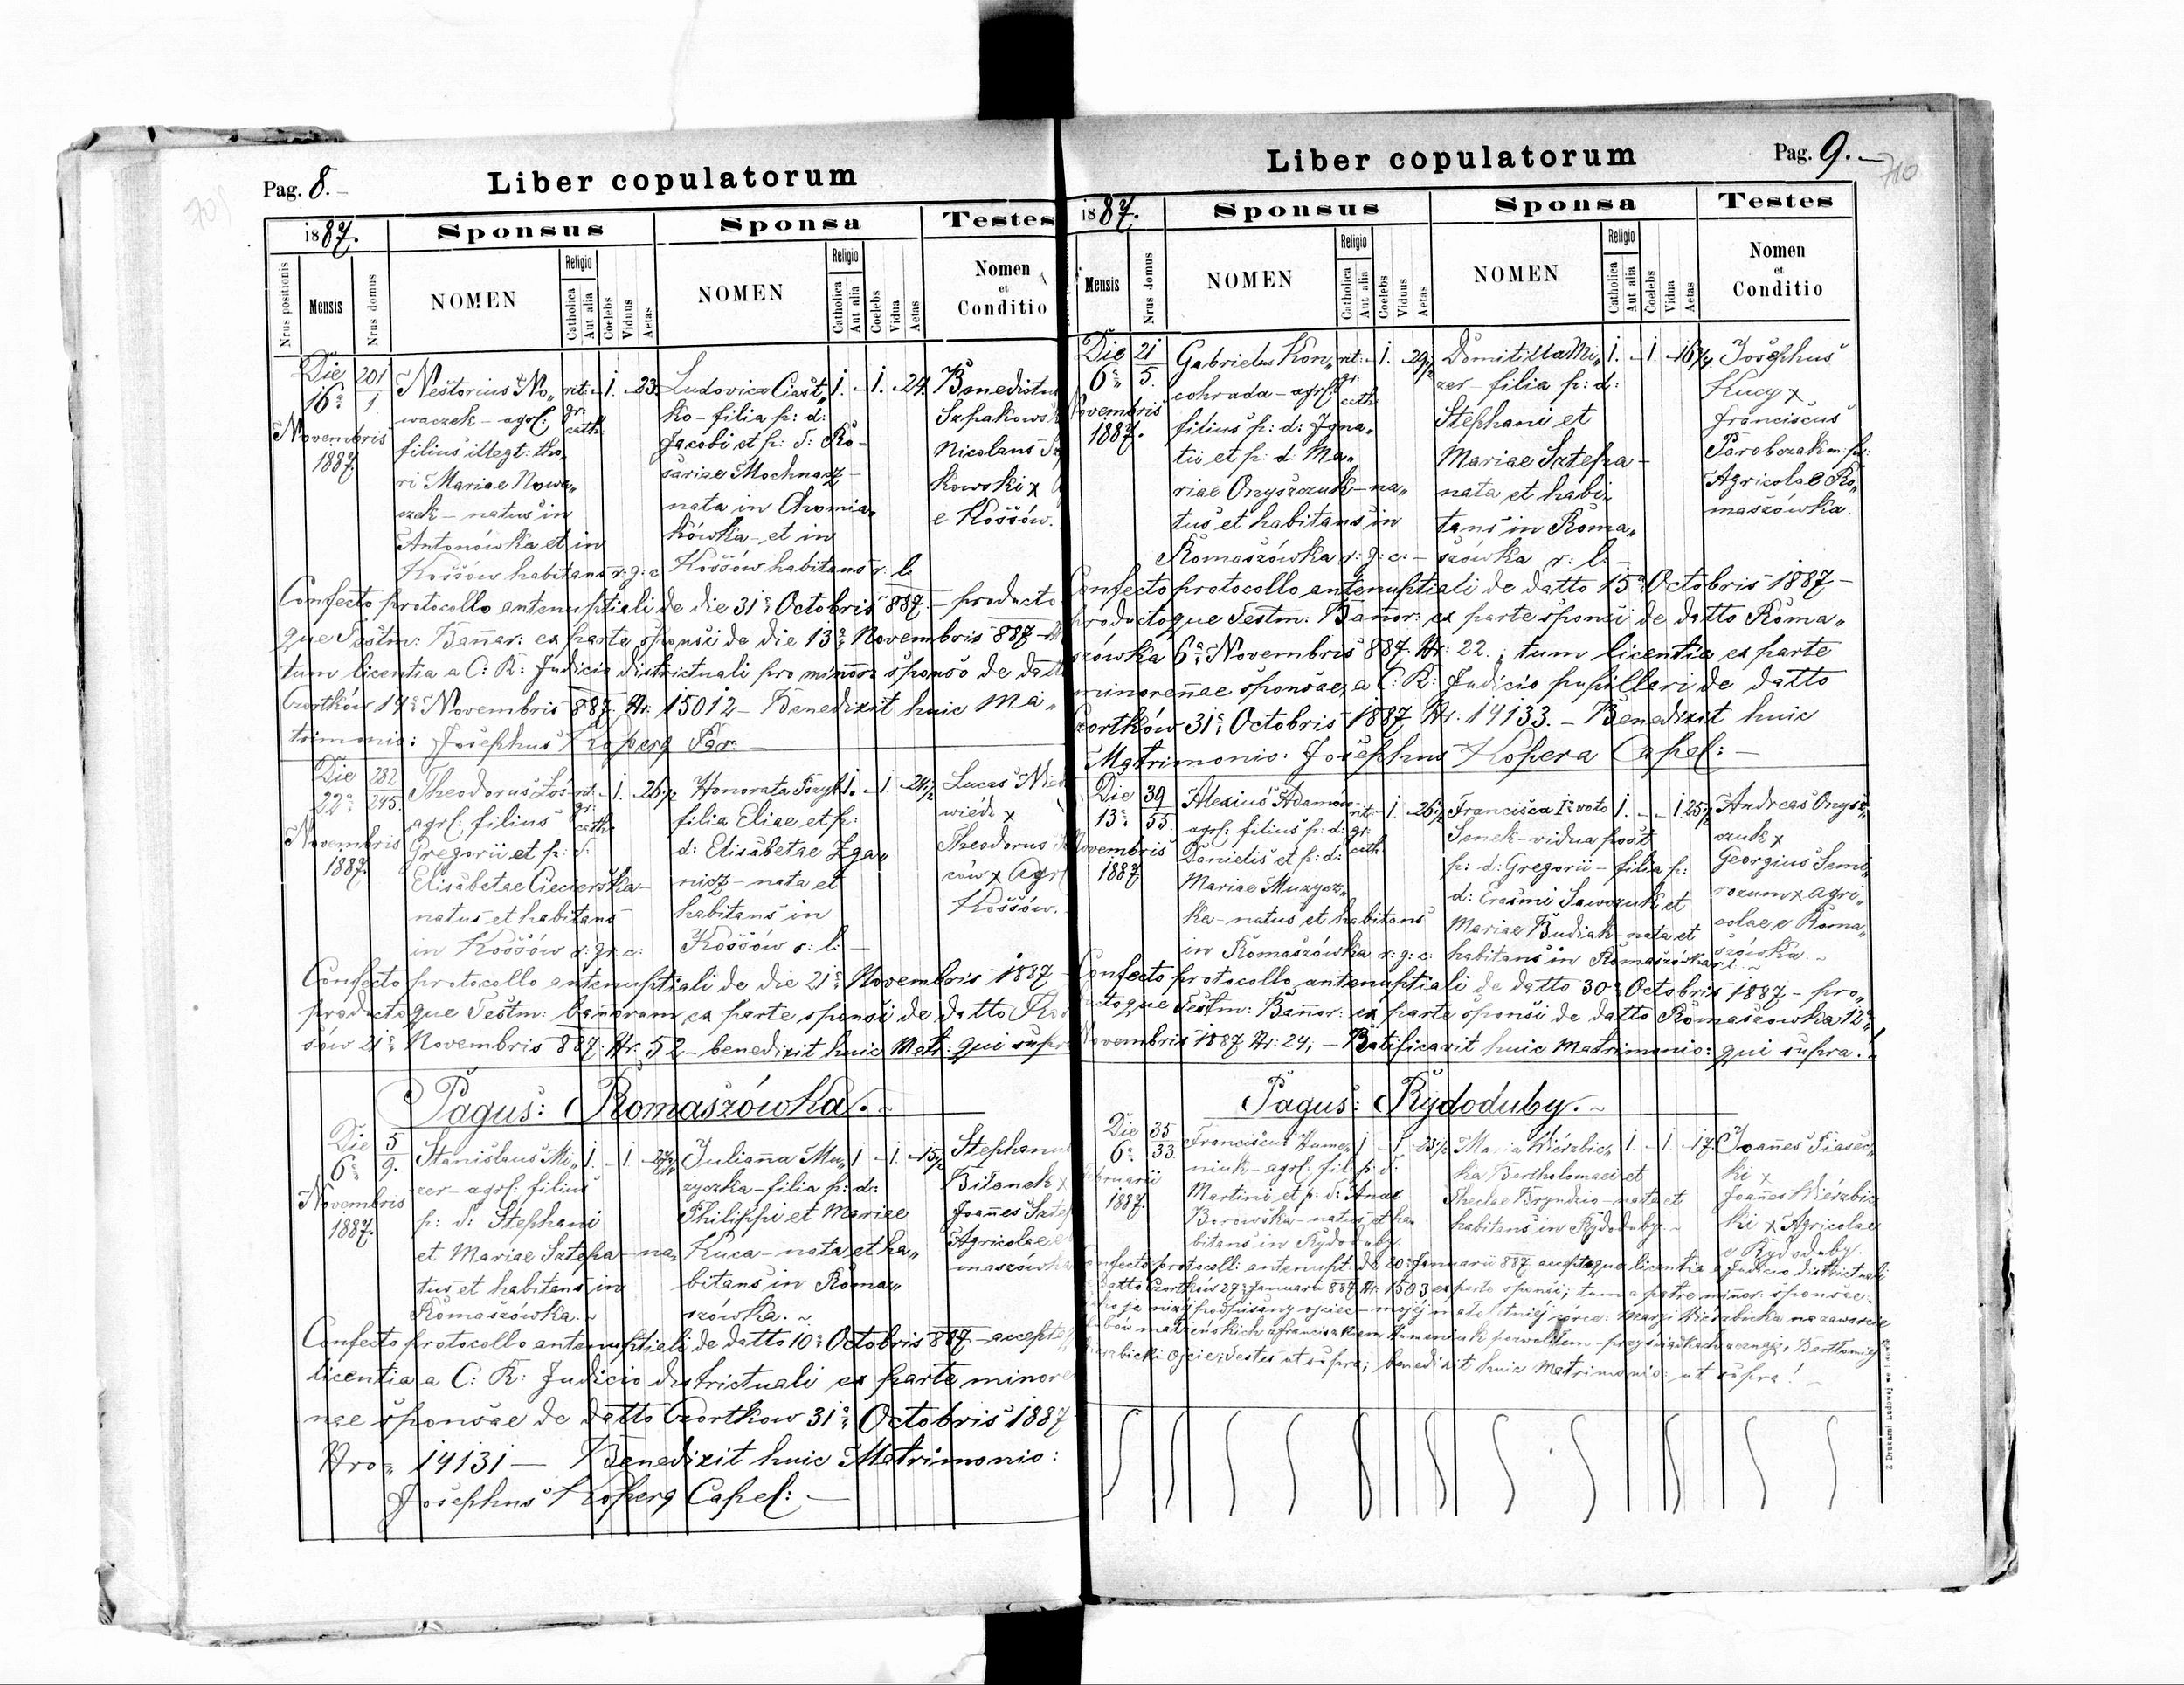 Pag. 8.
Liber copulatorum
1887.
Sponsus
Sponsa
Testes
Nrus positionis
Mensis
Nrus domus
NOMEN
Religio
Catholica
Aut alia
Coelebs
Viduus
Aetas
NOMEN
Religio
Catholica
Aut alia
Coelebs
Vidua
Aetas
Nomen
et
Conditio
Die
16a
Novembris
1887.
201
1.
Nestorius No„
waczek - agrl:
filius illegt: tho„
ri Mariae Nowa„
czek - natus in
Antonówka et in
Kossów habitans r: g: c
rit:
gr:
cath:
1.
23.
Ludovica Ciast„
ko - filia p: d:
Jacobi et p: d: Ro-
sariae Mochnacz -
nata in Chomia„
kówka - et in
Kossów habitans r: l:
1. - 1. - 24.
Benedictus
Szpakows
Nicolaus
kowski x
e Kossów.
Confecto protocollo antenuptiali de die 31a Octobris 887. - producto
que Testm: Bannor: ex parte sponsi de die 13a Novembris 887 -
tum licentia a C: K: Judicio districtuali pro minore sponso de datt
Czortków 14a Novembris 887. Nr. 15012 - Benedixit huic Ma„
trimonio: Josephus Koperą Par: —
Die
22a
Novembris
1887.
282
245.
Theodorus Łoś
agrl: filius
Gregorii et p: d:
Elisabetae Cieciorska -
natus et habitans
in Kossów r: gr: c:
rit:
gr:
cath:
1.
26 1/2
Honorata
filia Eliae et p:
d: Elisabetae Zga„
nicz - nata et
habitans in
Kossów r: l: —
1. - 1. 24 1/2
Lucas Nied
wiedz x
Theodorus
ców x Agrl
Kossów.
Confecto protocollo antenuptiali de die 21a Novembris 1887 -
productoque Testm: bannorum ex parte sponsi de datto Kos
sów 21a Novembris 887. Nr. 52 - benedixit huic Matr: qui supra
Pagus: Romaszówka.
Die
6a
Novembris
1887.
5
9.
Stanislaus Mi„
zer - agrl: filius
p: d: Stephani
et Mariae Sztepa - na„
tus et habitans in
Romaszówka.
1. - 1.
Julianna Mu„
zyczka - filia p: d:
Philippi et Mariae
Kuca - nata et ha„
bitans in Roma„
szówka.
1. - 1. - 15 1/2
Stephanus
Bilanek x
Joannes Sztep
Agricolae
maszówka
Confecto protocollo antenuptiali de datto 10a Octobris 887 - accepto
licentia a C: K: Judicio districtuali ex parte minore
nae sponsae de datto Czortkow 31a Octobris 1887
Nro„ 14131 — Benedixit huic Matrimonio:
Josephus Koperą Capel: —
Liber copulatorum
Pag. 9.
710
1887.
Sponsus
Sponsa
Testes
Mensis
Nrus domus
NOMEN
Religio
Catholica
Aut alia
Coelebs
Viduus
Aetas
NOMEN
Religio
Catholica
Aut alia
Coelebs
Vidua
Aetas
Nomen
et
Conditio
Die
6a
Novembris
1887.
21
5.
Gabrielus Kon„
cohrada - agrl:
filius p: d: Igna„
tii et p: d: Ma„
riae Onyszczuk - na„
tus et habitans in
Romaszówka r: g: c: -
rit:
gr:
cath
1. 29 1/2
Domitilla Mi„
zer - filia p: d:
Stephani et
Mariae Sztepa -
nata et habi„
tans in Roma„
szówka r: l: -
1. - 1. 16 3/4
Josephus
Kucy x
Franciscus
Parobczak m: pr:
Agricolae Ro„
maszówka.
Confecto protocollo antenuptiali de datto 15a Octobris 1887 -
productoque Testm: Bannor: ex parte sponsi de datto Roma„
szówka 6a Novembris 887. Nr: 22., tum licentia ex parte
minorennae sponsae, a C: K: Judicio pupillari de datto
Czortków 31a Octobris 1887 Nr: 14133. - Benedixit huic
Matrimonio: Josephus Kopera Capel: —
Die
13a
Novembris
1887.
39
55.
Alexius Adamów
agrl: filius p: d:
Danielis et p: d:
Mariae Muzycz„
ka - natus et habitans
in Romaszówka r: g: c:
rit:
gr:
cath
1. 26 1/2
Francisca Io voto
Senek - vidua post
p: d: Gregorii - filia p:
d: Erasmi Sawczuk et
Mariae Budiak - nata et
habitans in Romaszówka r: l.
1. - 1 25 1/2
Andreas Onysz„
czuk x
Georgius Semi„
rozum x agri„
colae e Roma„
szówka.
Confecto protocollo antenuptiali de datto 30a Octobris 1887 - pro„
ctoque Testm: Bannor: ex parte sponsi de datto Romaszowka 12a
Novembris 1887 Nr: 24; - Ratificavit huic Matrimonio: qui supra.
Pagus: Rydoduby.
Die
6a
bruarii
1887.
35
33.
Franciscus Hume„
niuk - agrl: fil: p: d:
Martini et p: d: Annae
Borowska - natus et ha„
bitans in Rydoduby
1 - 1 - 23 1/2
Maria Wierzbic„
ka Bartholomaei et
Theclae Bryndzio - nata et
habitans in Rydoduby.
1. - 1. - 17.
Joannes Piasec„
ki x
Joannes Wierzbic
ki x Agricolae
e Rydoduby.
Confecto protocoll: antenupt: de 20a Januarii 887 acceptaque licentia a Judicio districtuali
datto Czortków 27a Januarii 887. Nr. 1503 ex parte sponsi; tum a patre minor: sponsae:
ja niżej podpisany ojciec - mojej małoletniej córce: Maryi Wierzbicka na zawarcie
bów małżeńskich z Franciszkiem Humeniuk pozwoliłem - przy świadkach Bartłomiej
rzbicki ojciec; Testes ut supra; benedixit huic Matrimonio: ut supra!
Z Drukarni Ludowej we Lwowie